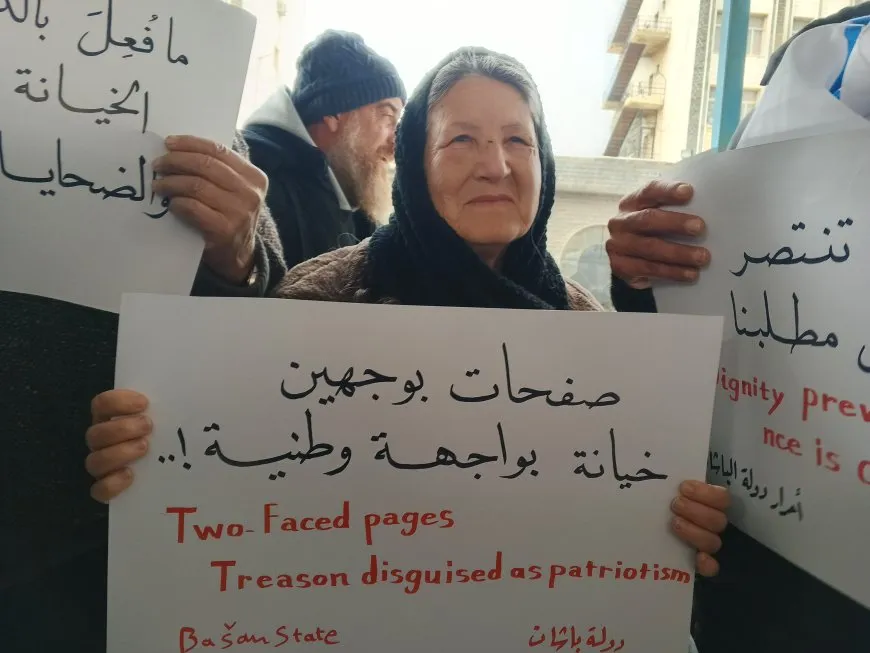 ما فُعِلَ
الخيانة
والضحايا
صفحات بوجهين
خيانة بواجهة وطنية !..
Two-Faced pages
Treason disguised as patriotism
Bašan State
دولة باشان
تنتصر
مطلبنا
ignity prev
nce is
أحرار دولة الباشان